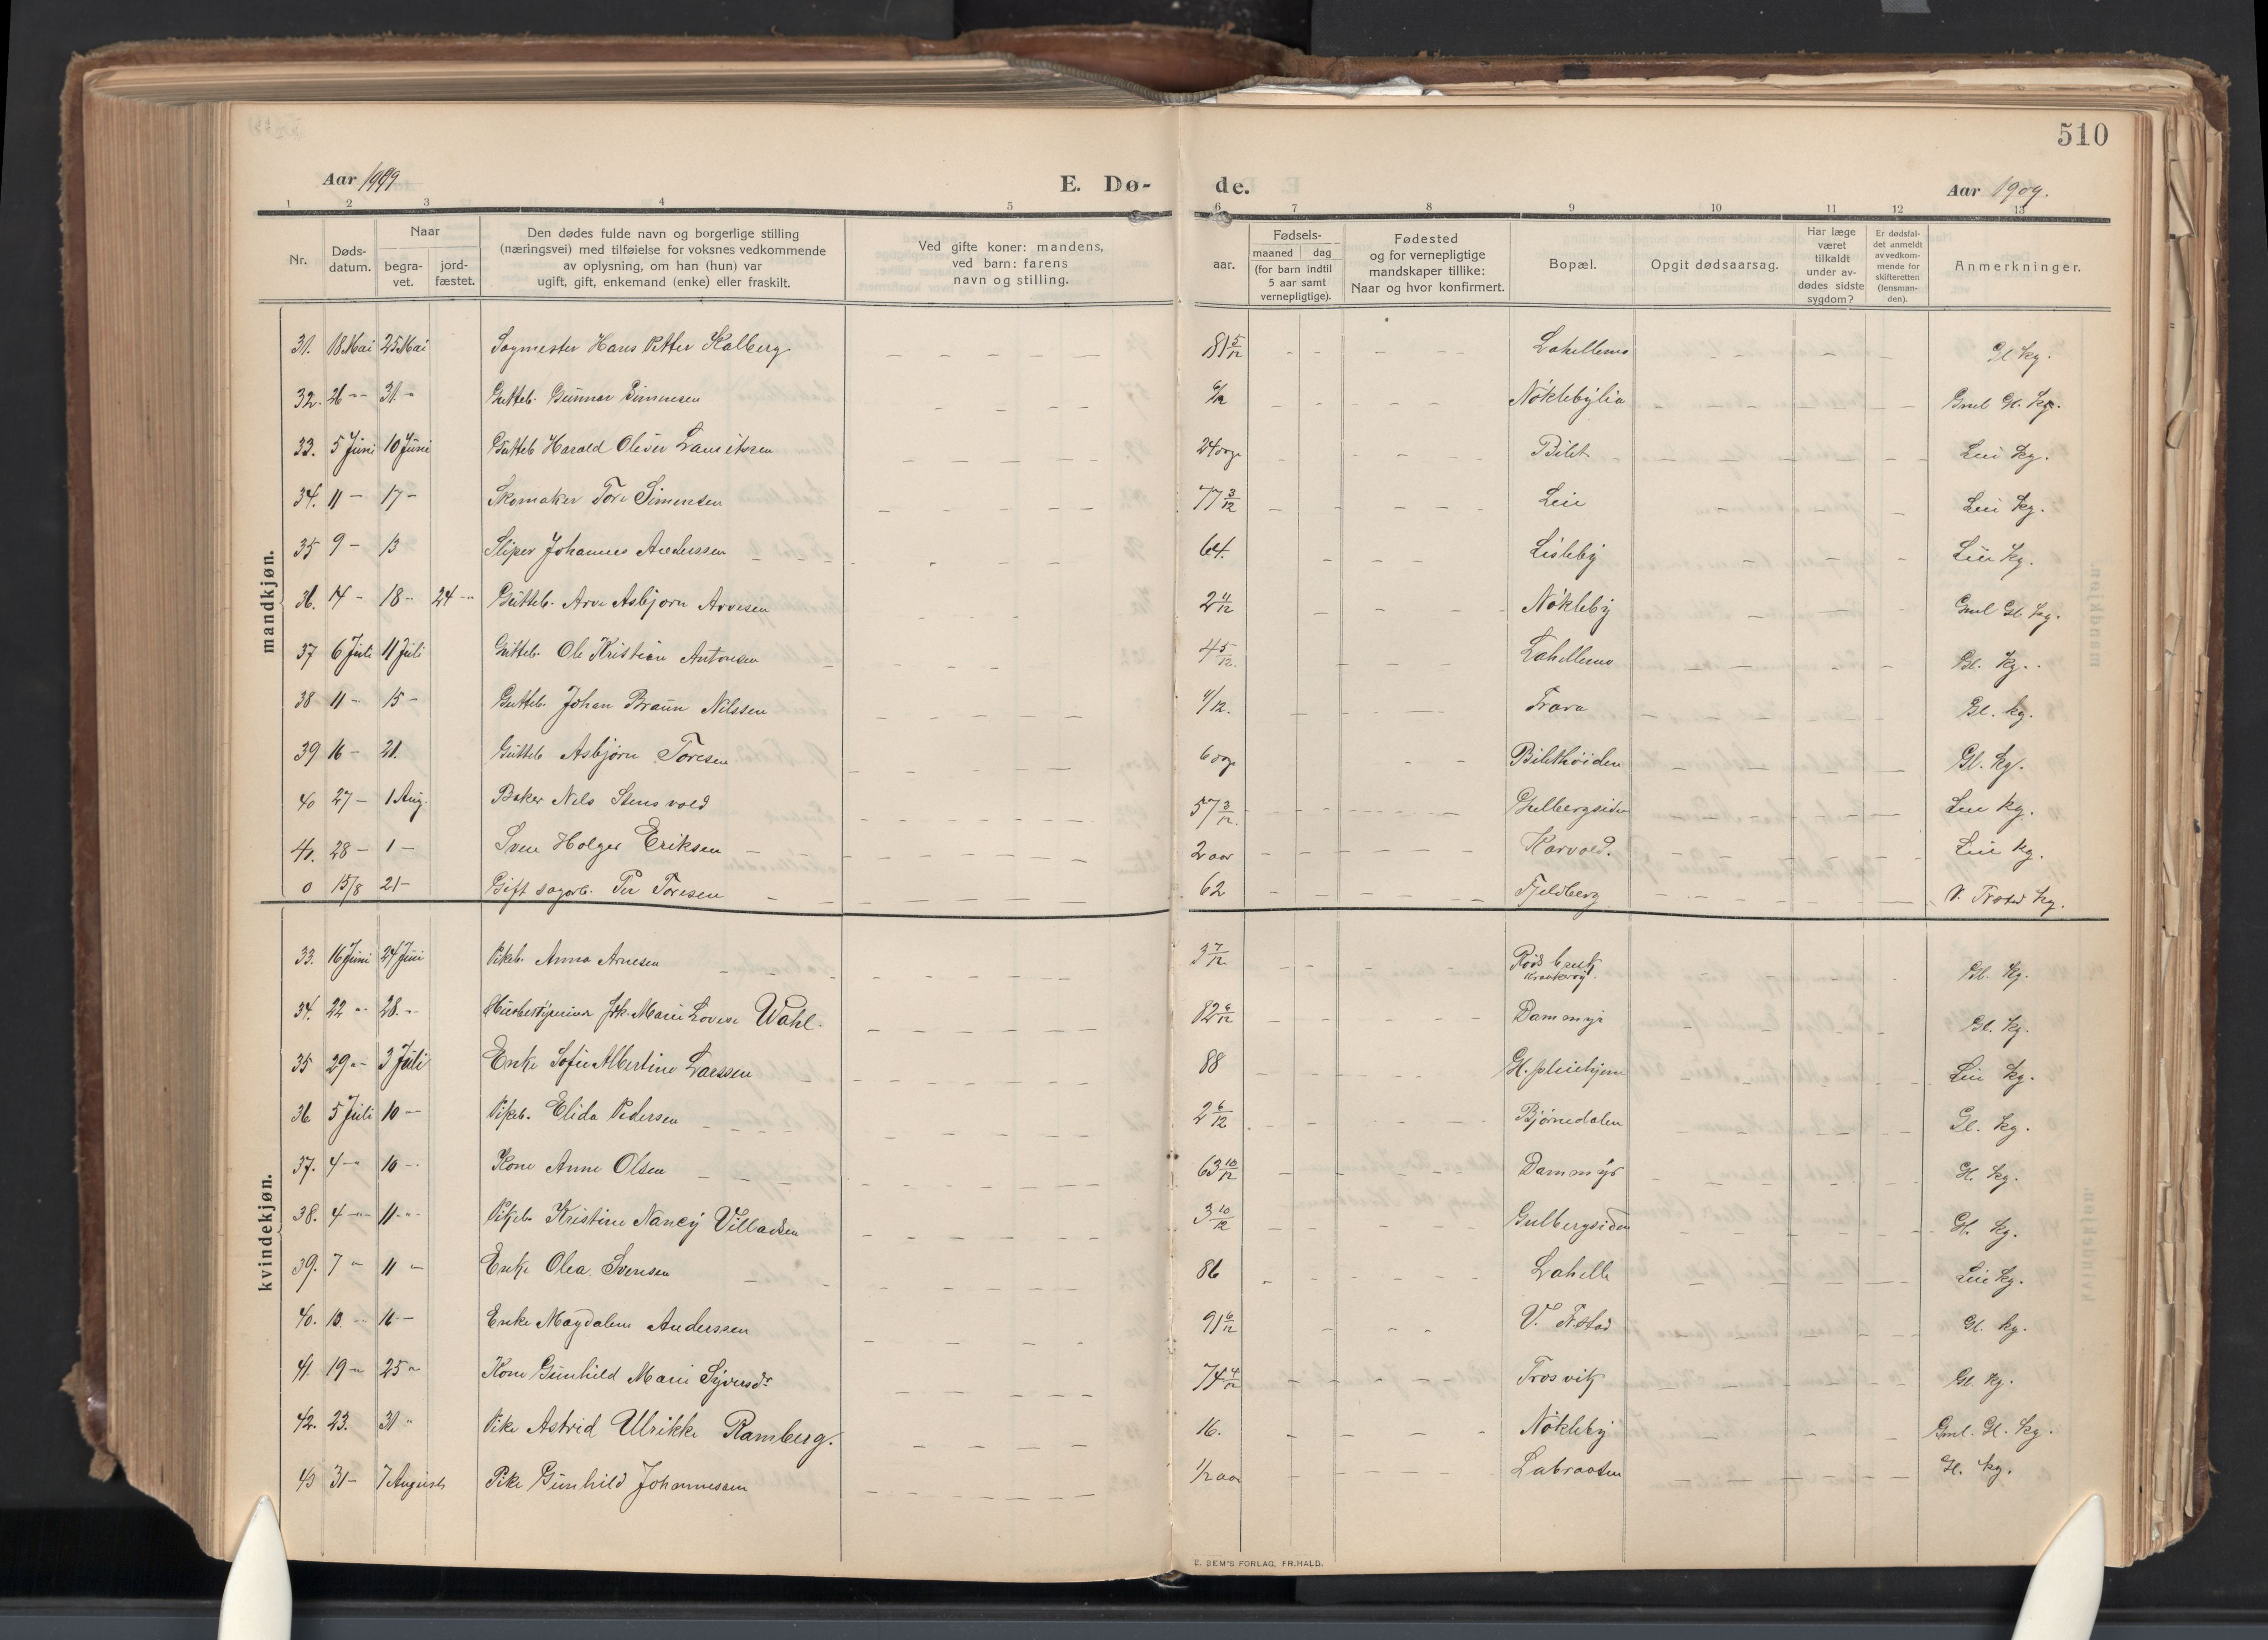 510
Aar 1909
E. Dø-
de.
Aar 1909.
1 2 3 4 5 6 7 8 9 10 11 12 13
Nr.
Døds-
datum.
Naar
begra-
vet.
jord-
fæstet.
Den dødes fulde navn og borgerlige stilling
(næringsvei) med tilføielse for voksnes vedkommende
av oplysning, om han (hun) var
ugift, gift, enkemand (enke) eller fraskilt.
Ved gifte koner: mandens,
ved barn: farens
navn og stilling.
aar.
Fødsels-
maaned dag
(for barn indtil
5 aar samt
vernepligtige).
Fødested
og for vernepligtige
mandskaper tillike:
Naar og hvor konfirmert.
Bopæl.
Opgit dødsaarsag.
Har læge
været
tilkaldt
under av-
dødes sidste
sygdom?
Er dødsfal-
det anmeldt
av vedkom-
mende for
skifteretten
(lensman-
den).
Anmerkninger.
mandkjøn.
31. 18 Mai 25 Mai Sagmester Hans Petter Kalberg 81 5/12 Lahellemo Gl kg.
32. 26 -- 31 - Gutteb. Gunnar Simensen 6/12 Nøklebylia Gml Gl. kg.
33. 5 Juni 10 Juni Gutteb Harald Oliver Lauritzen 24 Bilet Leie kg.
34. 11 - 17 - Skomaker Tore Simensen 77 3/12 Leie Leie kg.
35 9 - 13 Sliper Johannes Anderssen 64. Lisleby Leie kg.
36. 14 - 18 - 24 -- Gutteb. Arve Asbjørn Arvesen 2 11/12 Nøkleby Gml Gl. kg.
37 6 Juli 11 Juli Gutteb. Ole Kristian Antonsen 4 5/12. Lahellemo Gl. kg.
38 11 - 15 - Gutteb. Johan Braun Nilssen 4/12. Trara Gl. kg.
39 16 - 21. Gutteb Asbjørn Toresen 6 Bilethøiden Gl. kg.
40 27 - 1 Aug. Baker Nils Stensvold 57 3/12. Gulbergsiden Leie kg.
41. 28 - 1 - Sven Holger Eriksen 2 aar Karvold. Leie kg.
0 15/8 21 - Gift sagarb. Per Toresen 62 Fjeldberg V. Frstad kg.
kvindekjøn.
33. 16 Juni 24 Juni Pikeb. Anna Arnesen 3 7/12 Røds bruk
Kraakerøy. Gl. kg.
34. 22 -- 28. - Husbestyrerinde frk. Marie Lovise Wahl. 82 6/12 Dammyr Gl. kg.
35 29 -- 3 Juli Enke Sofie Albertine Larssen 88 Gl. pleiehjem Leie kg.
36 5 Juli 10 -- Pikeb. Elida Pedersen 2 6/12 Bjørnedalen Gl. kg.
37. 4 -- 10 -- Kone Anne Olsen 63 10/12 Dammyr Gl. kg.
38. 4 -- 11 -- Pikeb Kristine Nancy Villadsen 3 10/12 Gulbergsiden Gl. kg.
39. 7 - 11 - Enke Olea Svensen 86 Lahelle Leie kg.
40. 13. -- 16 - Enke Magdalene Anderssen 91 6/12 V. F.stad Gl. kg.
41. 19 - 25 - Kone Gunhild Marie Syversdr 75 4/12 Trosvik Gl. kg.
42. 23. 31 - Pike Astrid Ulrikke Ramberg. 16. Nøkleby Gml. Gl. kg.
43 31 - 7 August Pike Gunhild Johannessen 1/2 aar Labraaten Gl. kg.
E. SEM'S FORLAG, FR.HALD.